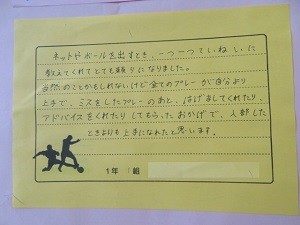 ネットやボールを出すとき、一つ一つていねいに
教えてくれてとても頼りになりました。
当然のことかもしれないけど全てのプレーが自分より
上手で、ミスをしたプレーのあと、はげましてくれたり、
アドバイスをくれたりしてもらったおかげで、入部した
ときよりも上手になれたと思います。
1年 1組